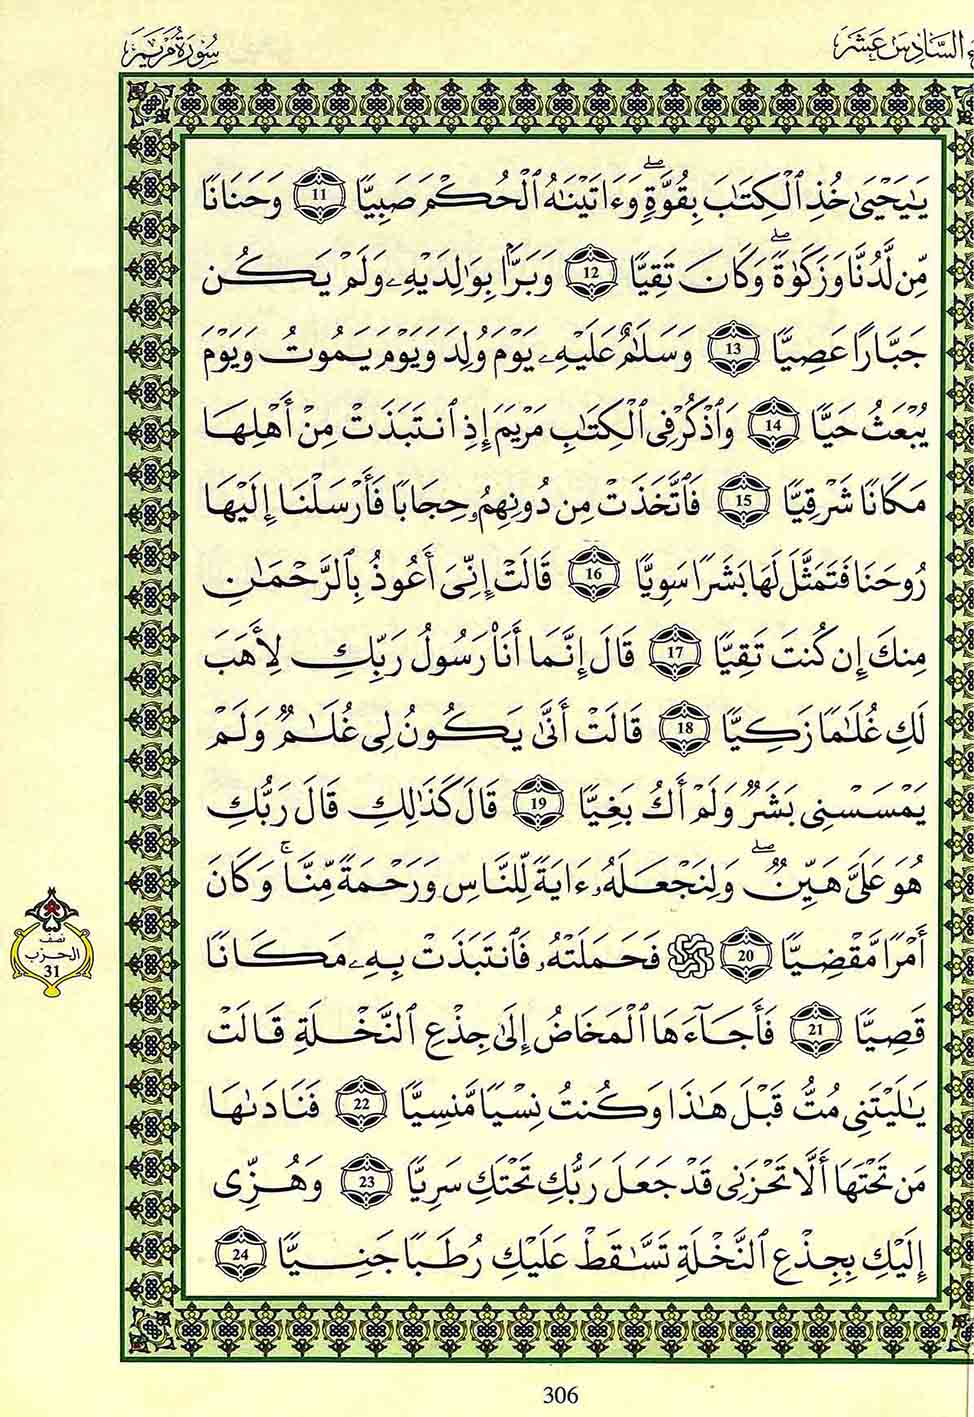 السَّادِسَ عَشَرَ
سُورَةُ مَرْيَمَ
يَٰيَحْيَىٰ خُذِ ٱلْكِتَٰبَ بِقُوَّةٍۖ وَءَاتَيْنَٰهُ ٱلْحُكْمَ صَبِيًّا 11 وَحَنَانًا
مِّن لَّدُنَّا وَزَكَوٰةًۖ وَكَانَ تَقِيًّا 12 وَبَرًّۢا بِوَٰلِدَيْهِۦ وَلَمْ يَكُن
جَبَّارًا عَصِيًّا 13 وَسَلَٰمٌ عَلَيْهِۦ يَوْمَ وُلِدَ وَيَوْمَ يَمُوتُ وَيَوْمَ
يُبْعَثُ حَيًّا 14 وَٱذْكُرْ فِى ٱلْكِتَٰبِ مَرْيَمَ إِذِ ٱنتَبَذَتْ مِنْ أَهْلِهَا
مَكَانًا شَرْقِيًّا 15 فَٱتَّخَذَتْ مِن دُونِهِمُۥ حِجَابًا فَأَرْسَلْنَا إِلَيْهَا
رُوحَنَا فَتَمَثَّلَ لَهَا بَشَرًا سَوِيًّا 16 قَالَتْ إِنِّىَ أَعُوذُ بِٱلرَّحْمَٰنِ
مِنكَ إِن كُنتَ تَقِيًّا 17 قَالَ إِنَّمَا أَنَا۠ رَسُولُ رَبِّكِ لِأَهَبَ
لَكِ غُلَٰمًا زَكِيًّا 18 قَالَتْ أَنَّىٰ يَكُونُ لِى غُلَٰمٌ وَلَمْ
يَمْسَسْنِى بَشَرٌ وَلَمْ أَكُ بَغِيًّا 19 قَالَ كَذَٰلِكِ قَالَ رَبُّكِ
هُوَ عَلَىَّ هَيِّنٌۖ وَلِنَجْعَلَهُۥ ءَايَةً لِّلنَّاسِ وَرَحْمَةً مِّنَّاۚ وَكَانَ
أَمْرًا مَّقْضِيًّا 20 فَحَمَلَتْهُۥ فَٱنتَبَذَتْ بِهِۦ مَكَانًا
نصف
الحزب
31
قَصِيًّا 21 فَأَجَآءَهَا ٱلْمَخَاضُ إِلَىٰ جِذْعِ ٱلنَّخْلَةِ قَالَتْ
يَٰلَيْتَنِى مُتُّ قَبْلَ هَٰذَا وَكُنتُ نِسْيًا مَّنسِيًّا 22 فَنَادَىٰهَا
مَن تَحْتَهَا أَلَّا تَحْزَنِى قَدْ جَعَلَ رَبُّكِ تَحْتَكِ سَرِيًّا 23 وَهُزِّى
إِلَيْكِ بِجِذْعِ ٱلنَّخْلَةِ تَسَّٰقَطْ عَلَيْكِ رُطَبًا جَنِيًّا 24
306